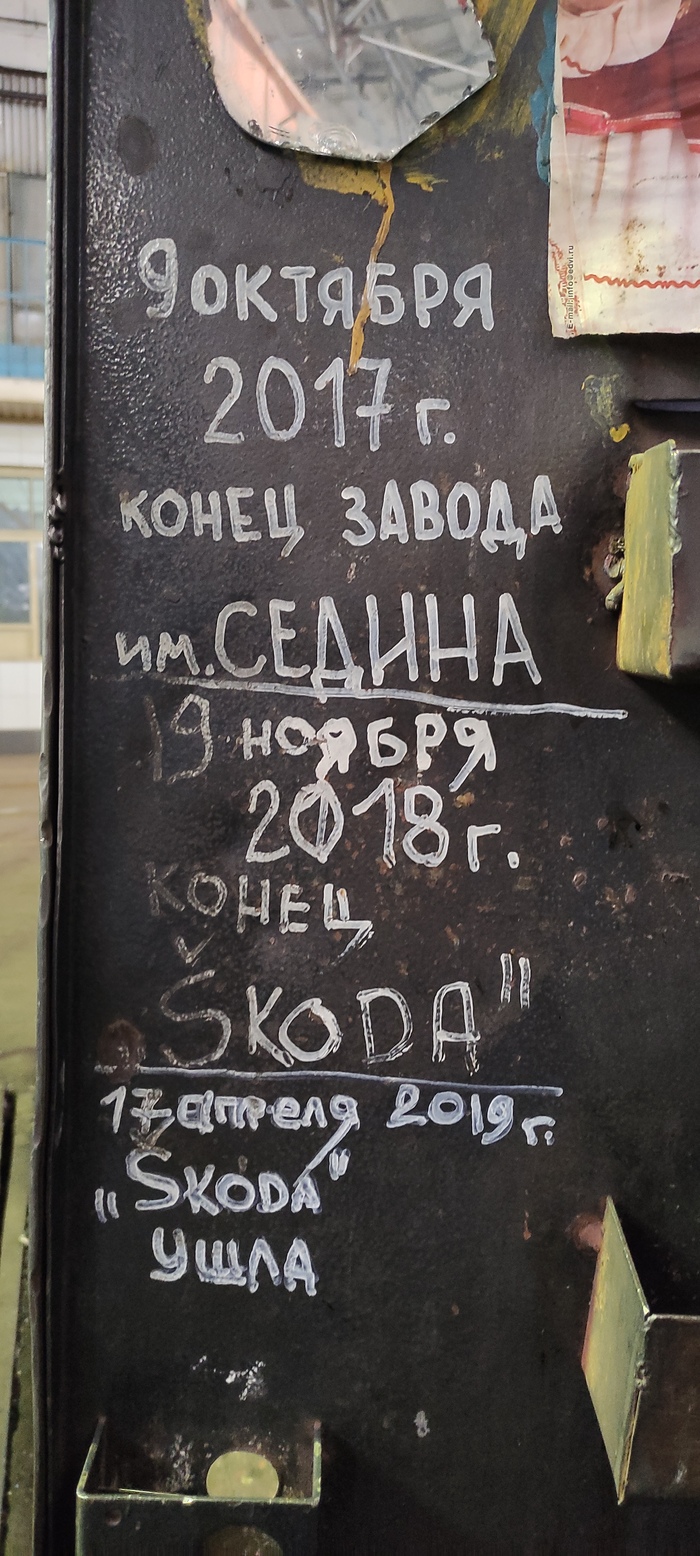 E-mail:info@edvi.ru
9 ОКТЯБРЯ
2017 г.
КОНЕЦ ЗАВОДА
им. СЕДИНА
19 НОЯБРЯ
2018 г.
КОНЕЦ
ŠKODA"
17 апреля 2019 г.
„ŠKODA"
УШЛА